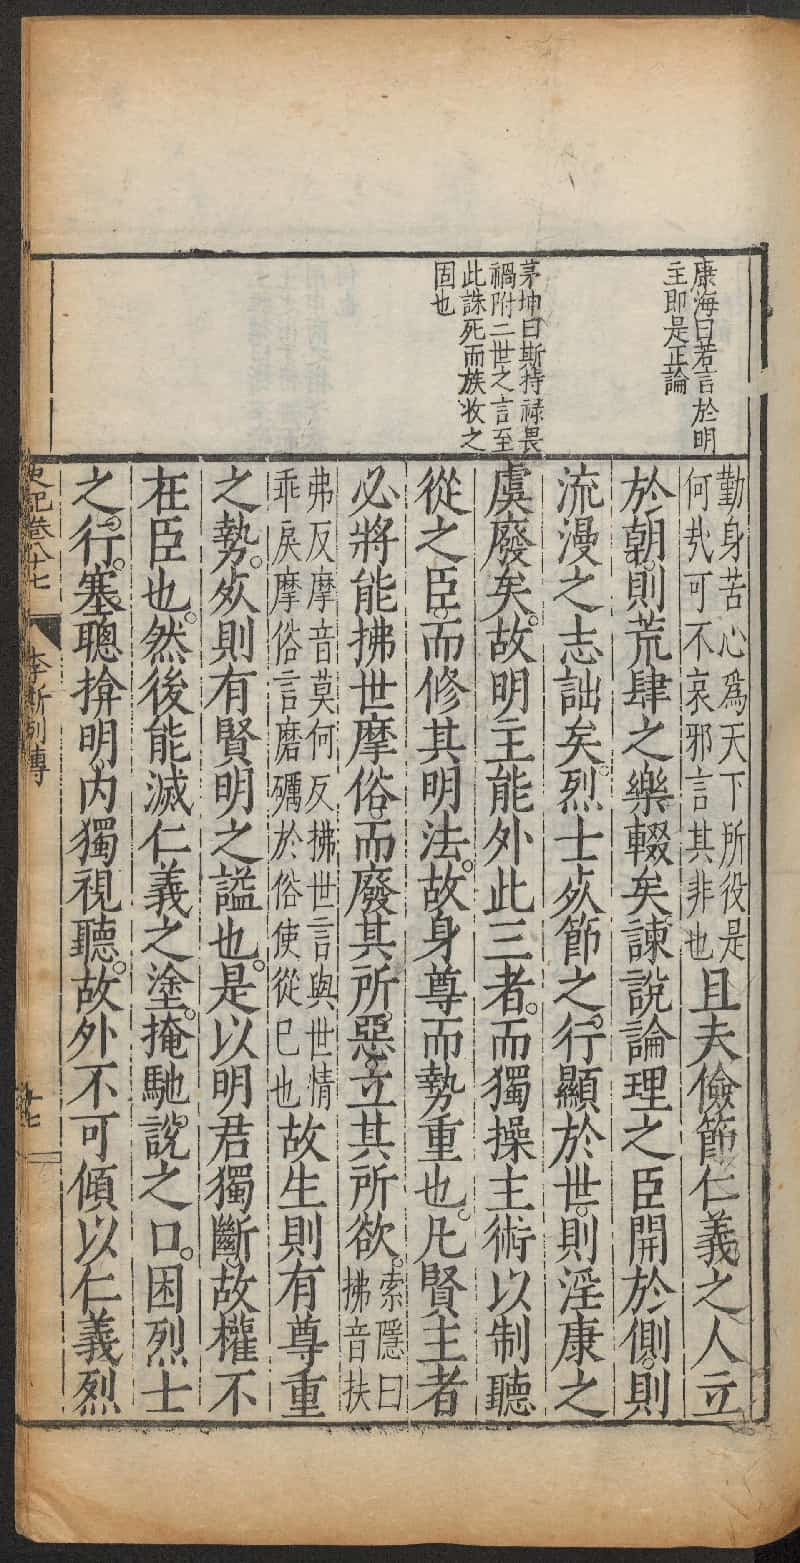 康海曰若言於明
主即是正論
茅坤曰斯持祿畏
禍附二世之言至
此誅死而族收之
固也
勤身苦心爲天下所役是
何㢤可不哀邪言其非也
且夫儉節仁義之人立
於朝則荒肆之樂輟矣諫說論理之臣開於側則
流漫之志詘矣烈士死節之行顯於世則淫康之
虞廢矣故明主能外此三者而獨操主術以制聽
從之臣而修其明法故身尊而勢重也凡賢主者
必將能拂世摩俗而廢其所惡立其所欲
索隱曰
拂音扶
弗反摩音莫何反拂世言與世情
乖戾摩俗言磨礪於俗使從已也
故生則有尊重
之勢死則有賢明之謚也是以明君獨斷故權不
在臣也然後能滅仁義之塗掩馳說之口困烈士
之行塞聰揜明内獨視聽故外不可傾以仁義烈
史記卷八十七
李斯列傳
十七